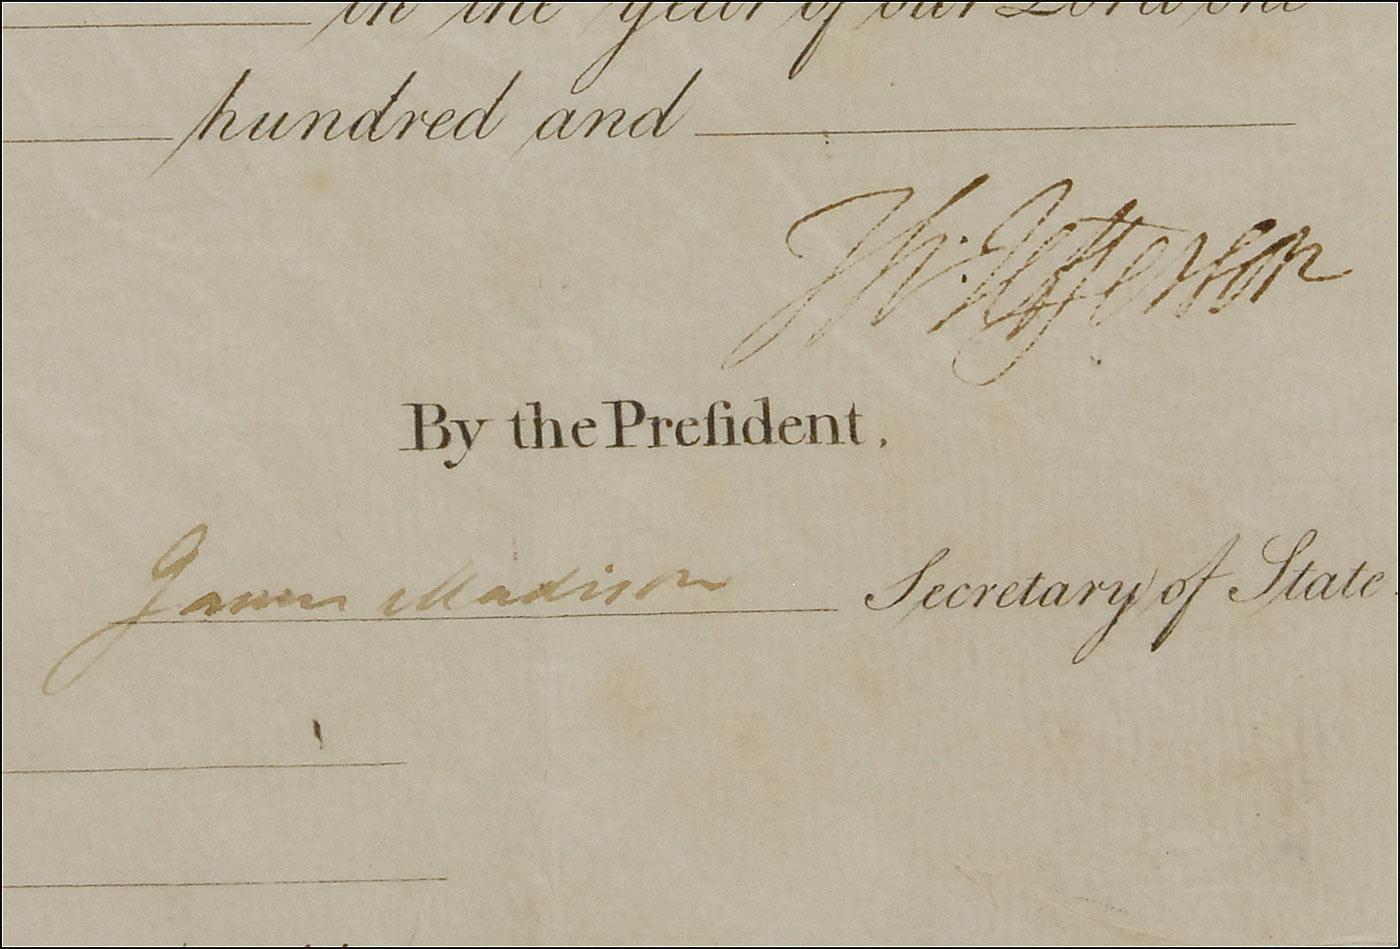 in the year of our Lord one
hundred and
Th: Jefferson
By the Preſident,
James Madison Secretary of State